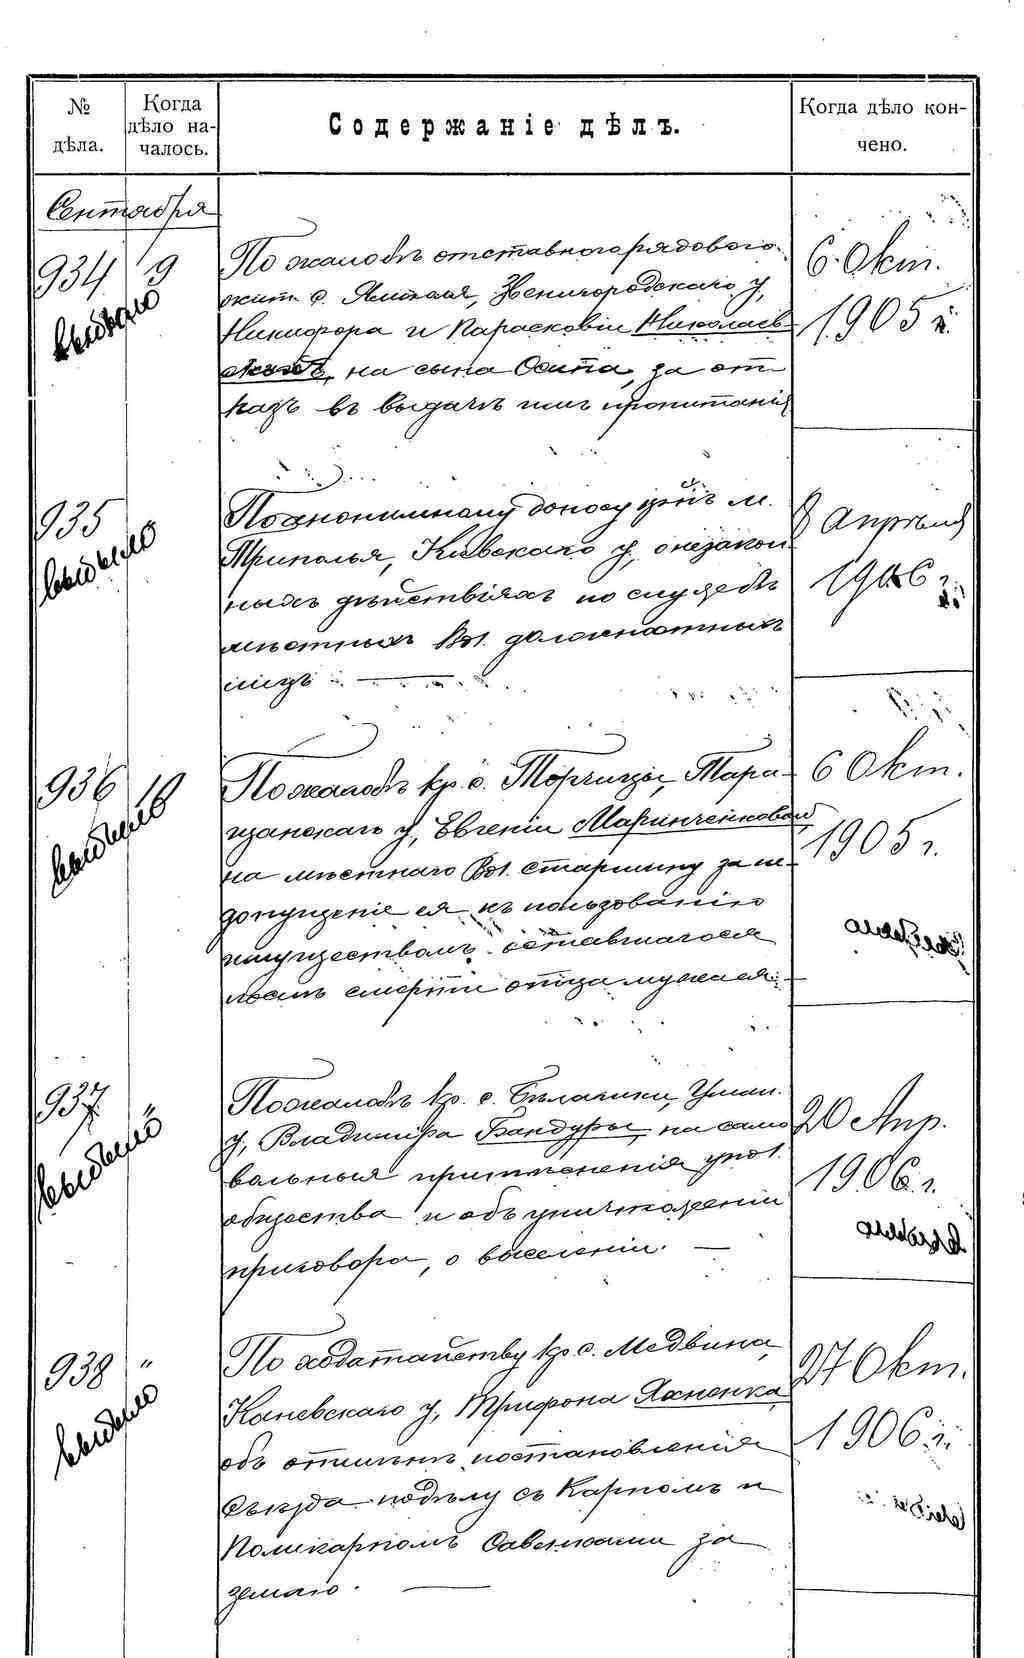 № дѣла.
Когда дѣло началось.
Содержаніе дѣлъ.
Когда дѣло кончено.
Сентября
934 9
выбыло
По жалобѣ отставного рядового
жит. с. Звенигородскаго у,
Никифора и Парасковіи Николаев
на сына Осипа, за от
казъ въ выдачѣ имъ пропитанія
6 Окт.
1905 г.
935
выбыло
По анонимному доносу м.
Триполья, Кіевскаго у, о незакон
ныхъ дѣйствіяхъ по службѣ
мѣстныхъ Вол. должностныхъ
лицъ —
8 Апрѣля
1906 г.
936 10
выбыло
По жалобѣ кр. с. Торчицы, Тара-
щанскаго у, Евгеніи Маринченковой,
на мѣстнаго Вол. старшину за не-
допущеніе ея къ пользованію
имуществомъ оставшагося
послѣ смерти отца мужа ея —
6 Окт.
1905 г.
937 "
выбыло
По жалобѣ кр. с. Уман.
у, Владиміра Бандуры, на само
вольныя притѣсненія упол.
общества и объ уничтоженіи
приговора, о выселеніи. —
20 Апр.
1906 г.
938 "
выбыло
По ходатайству кр. с. Медвина,
Каневскаго у, Трифона Яхненка
объ отмѣнѣ постановленія
Съѣзда по дѣлу съ Карпомъ и
Поликарпомъ Савенками за
землю. —
27 Окт.
1906 г.